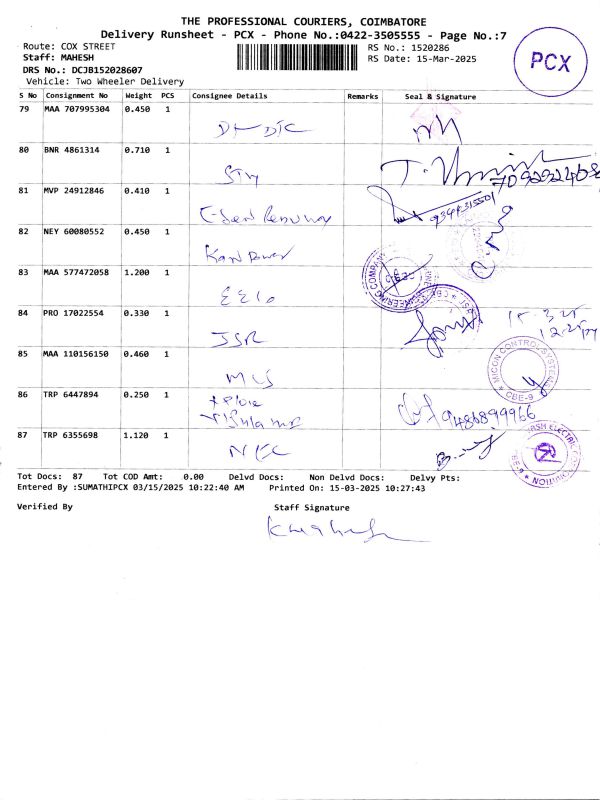 THE PROFESSIONAL COURIERS, COIMBATORE
Delivery Runsheet - PCX - Phone No.:0422-3505555 - Page No.:7
Route: COX STREET
RS No.: 1520286
Staff: MAHESH
RS Date: 15-Mar-2025
DRS No.: DCJB152028607
Vehicle: Two Wheeler Delivery
PCX
S No Consignment No Weight PCS Consignee Details Remarks Seal & Signature
79 MAA 707995304 0.450 1
80 BNR 4861314 0.710 1
709292468
81 MVP 24912846 0.410 1
82 NEY 60080552 0.450 1
83 MAA 577472058 1.200 1
84 PRO 17022554 0.330 1
JSR
85 MAA 110156150 0.460 1
MCS
MICON CONTROL SYSTEMS
CBE-9
86 TRP 6447894 0.250 1
9486899966
87 TRP 6355698 1.120 1
NEC
Tot Docs: 87 Tot COD Amt: 0.00 Delvd Docs: Non Delvd Docs: Delvy Pts:
Entered By :SUMATHIPCX 03/15/2025 10:22:40 AM Printed On: 15-03-2025 10:27:43
Verified By Staff Signature